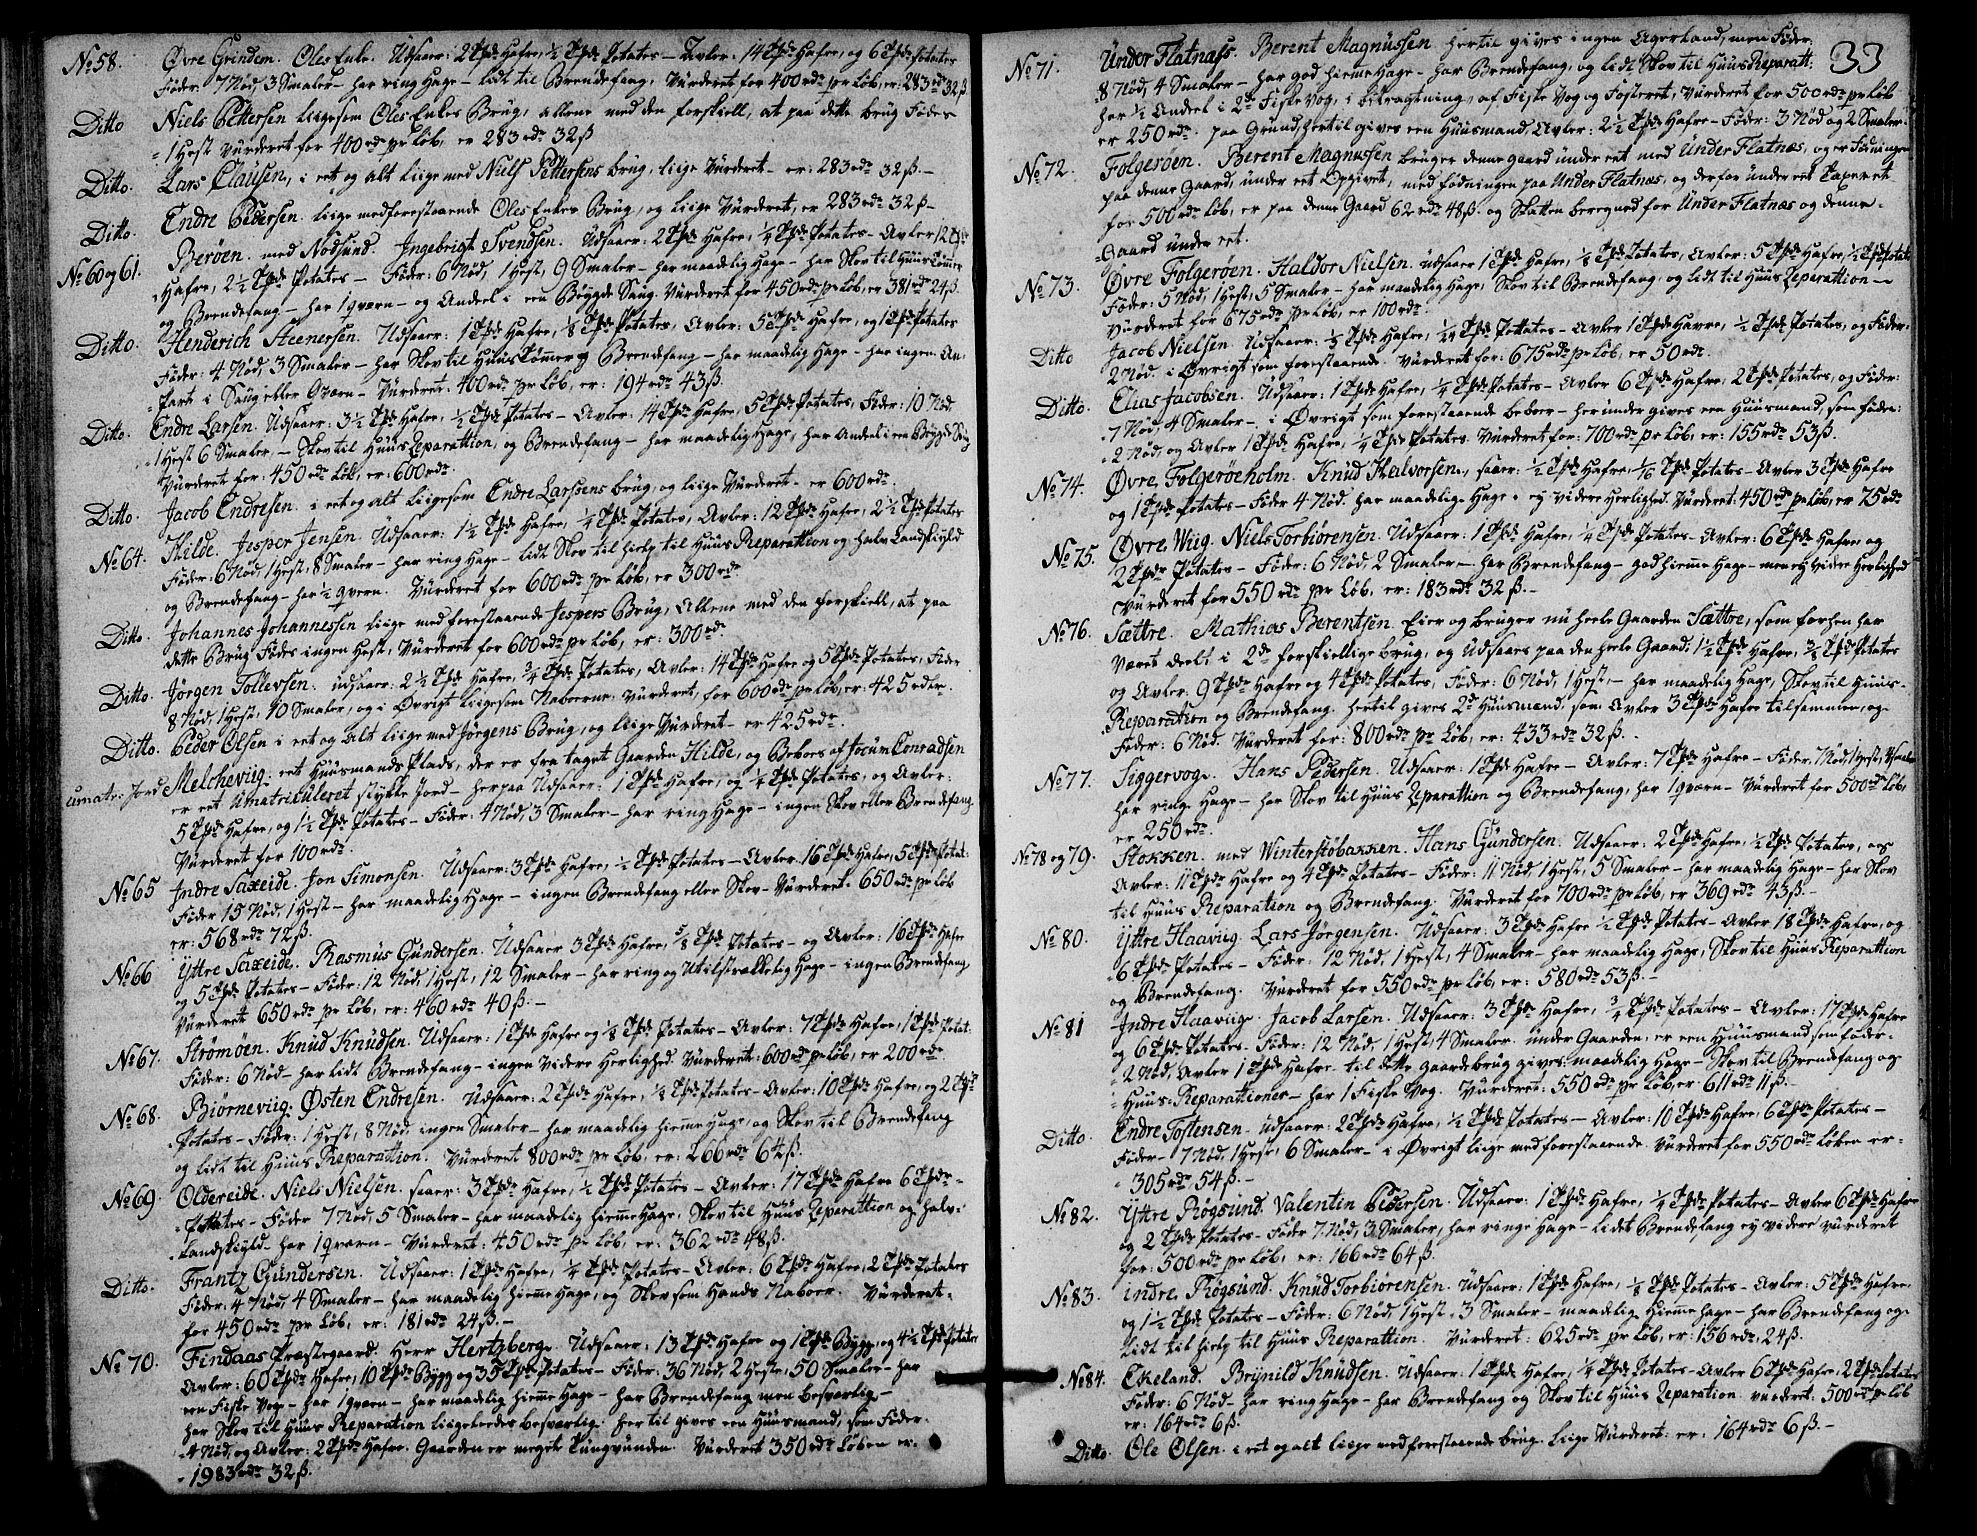 No 58. Øvre Grindem. Oles Enke. Udsaaer: 2 Tpde Hafre, ½ Tpde Potates – Avler: 14 Tpde Hafre, og 6 Tpde Potates
Føder: 7 Nød, 3 Smaler – har ring Hage – lidt til Brendefang, Vurderet for 400 rdr pr Løb, er: 283 rdr 32 β.
Ditto Niels Pettersen ligesom Oles Enkes Brug, allene med den forskiell, at paa dette brug Føder
1 Hest Vurderet for 400 rdr pr Løb, er 283 rdr 32 β
Ditto. Lars Clausen, i eet og alt liige med Niels Pettersens brug, liige Vurderet – er: 283 rdr 32 β. –
Ditto. Endre Pedersen. liige med forestaaende Oles Enkes Brug, og liige Vurderet, er 283 rdr 32 β –
No 60 og 61. Berøen. med Nodsund. Ingebrigt Svendsen. Udsaaer: 2 Tpde Hafre, ¼ Tpde Potates – Avler 12 Tpde
Hafre, 2½ Tpde Potates – Føder: 6 Nød, 1 Hest, 9 Smaler – har maadelig Hage – har Skov til Huus Tømer
og Brendefang – har 1 qvern – og Andeel i een Bøygde Saug. Vurderet for 450 rdr pr Løb, er 381 rdr 24 β.
Ditto. Henderich Steenersen. Udsaaer: 1 Tpde Hafre, ⅛ Tpde Potates, Avler: 5 Tpde Hafre, og 1 Tpde Potates
Føder: 4 Nød, 3 Smaler – har Skov til Huus Tømer og Brendefang – har maadelig Hage – har ingen An-
Part i Saug eller Qvern – Vurderet: 400 rdr pr Løb, er: 194 rdr 43 β.
Ditto. Endre Larsen. Udsaaer: 3½ Tpde Hafre, ½ Tpde Potates – Avler: 14 Tpde Hafre, 5 Tpde Potates, Føder: 10 Nød,
1 Hest 6 Smaler, – Skov til Huus Reparattion, og Brendefang – har maadelig Hage, har Andeel i een Bøygde Saug
Vurderet for: 450 rdr Løb, er: 600 rdr.
Ditto. Jacob Endresen. i eet og alt liigesom Endre Larsens brug, og liige Vurderet – er 600 rdr.
No 64. Hilde. Jesper Jensen. Udsaaer: 1½ Tpde Hafre, ¼ Tpde Potates, Avler: 12 Tpde Hafre, 2½ Tpde Potates
Føder: 6 Nød, 1 Hest, 8 Smaler – har ring Hage – lidt Skov til hielp til Huus Reparattion og halv Landskyld
og Brendefang – har ½ qvern. Vurderet for 600 rdr pr Løb, er 300 rdr.
Ditto. Johannes Johannessen liige med forestaaende Jespers Brug, Allene med den forskiell, at paa
dette Brug Fødes ingen Hest, Vurderet for 600 rdr pr Løb, er: 300 rdr.
Ditto. Jørgen Tollevsen. udsaaer: 2½ Tpde Hafre, ¾ Tpde Potates, Avler: 14 Tpde Hafre og 5 Tpde Potates, Føder
8 Nød, 1 Hest, 10 Smaler, og i Øvrigt liigesom Naboerne. Vurderet, for 600 rdr pr Løb, er: 425 rdr.
Ditto. Peder Olsen i eet og alt liige med Jørgens Brug, og liige Vurderet – er 425 rdr.
umatr: Jord Melcheviig. eet Huusmands Plads, der er fra taget Gaarden Hilde, og Beboes af Jocum Conradsen
er eet Umatriculeret stykke Jord – herpaa Udsaaer: 1 Tpde Hafre, og ¼ Tpde Potates, og Avler:
5 Tpde Hafre, og 1½ Tpde Potates – Føder: 4 Nød, 3 Smaler – har ring Hage – ingen Skov eller Brendefang
Vurderet for 100 rdr.
No 65 Indre Saxeide. Jon Simonsen. Udsaaer: 3 Tpde Hafre, ½ Tpde Potates – Avler: 16 Tpde Hafre, 5 Tpde Potat:
Føder 15 Nød, 1 Hest – har maadelig Hage – ingen Brendefang eller Skov – Vurderet. 650 rdr pr Løb
er: 568 rdr 72 β.
No 66 Yttre Saxeide. Rasmus Gundersen. Udsaaer 3 Tpde Hafre, ⅝ Tpde Potates – og Avler: 16 Tpde Hafre
og 5 Tpde Potates – Føder: 12 Nød, 1 Hest, 12 Smaler – har ring og Utilstrækkelig Hage – ingen Brendefang
Vurderet 650 rdr pr Løb, er: 460 rdr 40 β. –
No 67. Strømøen. Knud Knudsen. Udsaaer: 1 Tpde Hafre og ⅛ Tpde Potates – Avler: 7 Tpde Hafre, 1 Tpde Potat.
Føder: 6 Nød – har lidt Brendefang – ingen Videre Herlighed. Vurderet: 600 rdr pr Løb, er 200 rdr.
No 68. Biørneviig: Østen Endresen. Udsaaer: 2 Tpde Hafre, ⅛ Tpde Potates – Avler: 10 Tpde Hafre, og 2 Tpde
Potates – Føder: 1 Hest, 8 Nød, ingen Smaler – har maadelig hieme Hage, og Skov til Brendefang
og lidt til Huus Reparattion. Vurderet 800 rdr pr Løb, er: 266 rdr 64 β.
No 69. Oldereide. Niels Nielsen. saaer: 3 Tpde Hafre, ½ Tpde Potates – Avler: 17 Tpde Hafre 6 Tpde
Potates – Føder 7 Nød, 5 Smaler – har maadelig hieme Hage, Skov til Huus Reparattion og halv
Landskyld. har 1 qvern – Vurderet: 450 rdr pr Løb, er: 362 rdr 48 β.
Ditto. Frantz Gundersen. Udsaaer: 1 Tpde Hafre, ¼ Tpde Potates – Avler: 6 Tpde Hafre, 2 Tpde Potates
Føder: 4 Nød, 4 Smaler – har maadelig hieme Hage, og Skov som Hands Naboer. Vurderet
for 450 rdr pr Løb, er: 181 rdr 24 β. –
No 70. Findaas Præstegaard. Herr Hertzberg. Udsaaer: 13 Tpde Hafre og 1 Tpde Bygg, og 4½ Tpde Potates
Avler: 60 Tpde Hafre, 10 Tpde Bygg og 35 Tpde Potates – Føder: 36 Nød, 2 Heste, 50 Smaler – har
een Fiske Vog – har 1 qvern – har maadelig hieme Hage – har Brendefang men besværlig –
har Skov til Huus Reparation liigeledes besværlig. hertil gives een Huusmand, som Føder:
4 Nød, og Avler: 2 Tpde Hafre. Gaarden er meget tungvunden. Vurderet 350 rdr Løben er:
1983 rdr 32 β.
33
No 71. Under Flatnæss. Berent Magnussen hertil gives ingen Agerland, men Føder,
8 Nød, 4 Smaler – har god hieme Hage – har Brendefang, og lidt Skov til Huus Reparatt:
har ½ Andeel i 2de Fiske Vog, i betragtning, af Fiske Vog og Fosteret, Vurderet for 500 rdr pr Løb
er 250 rdr. paa Grund, hertil gives een Huusmand, Avler: 2½ Tpde Hafre – Føder: 3 Nød og 2 Smaler.
No 72. Folgerøen. Berent Magnussen bruger denne gaard under eet med Under Flatnæs, og er fødningen
paa denne Gaard, under eet Opgivet, med fødningen paa Under Flatnæs, og derfor under eet Taxeret
for 500 rdr Løb, er paa denne Gaard 62 rdr 48 β. og Skatten beregned for Under Flatnæs og denne
Gaard under eet.
No 73. Øvre Folgerøen. Haldor Nielsen. udsaaer 1 Tpde Hafre, ⅛ Tpde Potates, Avler: 5 Tpde Hafre, ½ Tpde Potates
Føder: 5 Nød, 1 Hest, 5 Smaler – har maadelig Hage, Skov til Brendefang, og lidt til Huus Reparattion –
Vurderet for 675 rdr pr Løb, er 100 rdr.
Ditto Jacob Nielsen. Udsaaer: ⅓ Tpde Hafre, 1/24 Tpde Pottates – Avler 1 Tpde Havre, ½ Tpde Potates, og Føder:
2 Nød. i Øvrigt som forestaaende. Vurderet for: 675 rdr pr Løb, er 50 rdr.
Ditto. Elias Jacobsen. Udsaaer: 1 Tpde Hafre, ¼ Tpde Potates – Avler 6 Tpde Hafre, 2 Tpde Potates, og Føder:
7 Nød, 4 Smaler –, i Øvrigt som forestaaende beboer – herunder gives een Huusmand, som føder:
2 Nød, og Avler 1 Tpde Hafre, ¼ Tpde Potates. Vurderet for: 700 rdr pr Løb, er: 155 rdr 53 β.
No 74. Øvre Folgerøeholm. Knud Halvorsen, saaer: ½ Tpde Hafre, 1/16 Tpde Potates – Avler 3 Tpde Hafre
og 1 Tpde Potates – Føder 4 Nød. har maadelige Hage – ey videre Herlighed. Vurderet: 450 rdr pr Løb, er 75 rdr
No 75. Øvre Wiig. Niels Torbiørensen. Udsaaer: 1 Tpde Hafre, ¼ Tpde Potates – Avler: 6 Tpde Hafre og
2 Tpde Potates – Føder: 6 Nød, 2 Smaler – har Brendefang – god hieme Hage – men ey Videre Herlighed
Vurderet for 550 rdr pr Løb, er: 183 rdr 32 β. –
No 76. Sættre. Mathias Berentsen. Eier og bruger nu heele Gaarden Sættre, som forhen har
Været deelt i 2de forskiellige brug, og Udsaaes paa den heele Gaard: 1½ Tpde Hafre, ⅜ Tpde Potates
og Avler: 9 Tpde Hafre og 4 Tpde Potates, Føder: 6 Nød, 1 Hest, – har maadelig Hage, Skov til Huus
Reparation og Brendefang. hertil gives 2de Huusmænd, som Avler 3 Tpde Hafre tilsammen, og
Føder: 6 Nød. Vurderet for: 800 rdr pr Løb, er: 433 rdr 32 β.
No 77. Siggervog. Hans Pedersen. Udsaaer: 1 Tpde Hafre – Avler: 7 Tpde Hafre – Føder: 7 Nød, 1 Hest,
har ringe Hage – har Skov til Huus Reparattion og Brendefang, har 1 qværn – Vurderet for 500 rdr Løb,
er 250 rdr.
No 78 og 79. Stokken. med Winterstøbakken. Hans Gundersen. Udsaaer: 2 Tpde Hafre, ½ Tpde Potates, og
Avler: 11 Tpde Hafre og 4 Tpde Potates – Føder: 11 Nød, 1 Hest, 5 Smaler – har maadelig Hage – har Skov
til Huus Reparation og Brendefang. Vurderet for 700 rdr pr Løb, er 369 rdr 43 β. –
No 80. Yttre Haaviig. Lars Jørgensen. Udsaaer: 3 Tpde Hafre ½ Tpde Potates – Avler 18 Tpde Hafre, og
6 Tpde Potates – Føder: 12 Nød, 1 Hest, 4 Smaler – har maadelig Hage, Skov til Huus Reparattion
og Brendefang. Vurderet for 550 rdr pr Løb, er: 580 rdr 53 β. –
No 81 Indre Haaviig. Jacob Larsen. Udsaaer: 3 Tpde Hafre, ¾ Tpde Potates – Avler: 17 Tpde Hafre
og 6 Tpde Potates – Føder: 12 Nød, 1 Hest, 4 Smaler. under Gaarden er een Huusmand, som føder
2 Nød, Avler 1 Tpde Hafre – til dette gaardebrug gives: maadelig Hage – Skov til Brendefang og
Huus Reparationer – har 1 Fiske Vog. Vurderet: 550 rdr pr Løb, er 611 rdr 11 β. –
Ditto. Endre Tostensen. udsaaer: 2 Tpde Hafre, ½ Tpde Potates – Avler: 10 Tpde Hafre, 6 Tpde Potates –
Føder – 7 Nød, 1 Hest, 6 Smaler – i Øvrigt liige med forestaaende. Vurderet for 550 rdr Løben er –
305 rdr 54 β. –
No 82. Yttre Røgsund. Valentin Pedersen. Udsaaer: 1 Tpde Hafre, ¼ Tpde Potates – Avler 6 Tpde Hafre
og 2 Tpde Potates – Føder 7 Nød, 3 Smaler, har ringe Hage – lidet Brendefang ey videre vurderet
for: 500 rdr pr Løb, er: 166 rdr 64 β.
No 83. indre Røgsund. Knud Torbiorensen. Udsaaer: 1 Tpde Hafre, ⅛ Tpde Potates – Avler: 5 Tpde Hafre,
og 1½ Tpde Potates – Føder: 6 Nød, 1 Hest, 3 Smaler – maadelig Hieme hage – har Brendefang og
lidt til hielp til Huus Reparattion. Vurderet: 625 rdr pr Løb, er: 156 rdr, 24 β.
No 84. Ekeland. Brynild Knudsen. Udsaaer: 1 Tpde Hafre, ¼ Tpde Potates – Avler 6 Tpde Hafre, 2 Tpde Potates
Føder: 6 Nød – har ring Hage – har Brendefang og Skov til Huus Reparation. vurderet. 500 rdr pr Løb
er: 164 rdr 6 β.
Ditto Ole Olsen. i eet og alt liige med forestaaende brug. liige Vurderet: er: 164 rdr 6 β. –